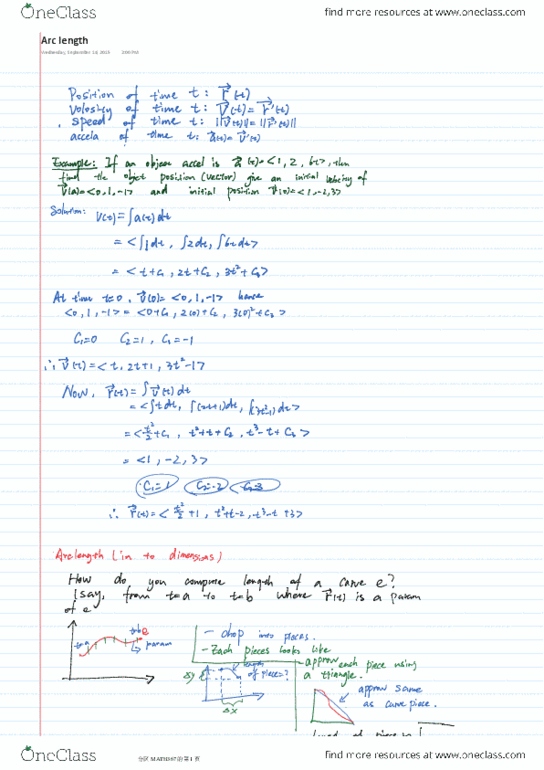 OneClass
find more resources at www.oneclass.com
Arc length
Position of time t: r(t)
Volosity of time t: V(t) = r'(t)
speed of time t: ||V(t)|| = ||r'(t)||
accela of time t: a(t) = V'(t)
Example: If an object accel is a(t)=<1, 2, 6t>, then
find the objet position (vector) give an initial velocity of
V(0)=<0,1,-1> and initial position r(0)=<1,-2,3>
Solution: V(t) = ∫a(t)dt
= <∫1dt, ∫2dt, ∫6tdt>
= <t+C₁, 2t+C₂, 3t²+C₃>
At time t=0, V(0)=<0,1,-1> hence
<0,1,-1> = <0+C₁, 2(0)+C₂, 3(0)²+C₃>
C₁=0 C₂=1, C₃=-1
∴ V(t)=<t, 2t+1, 3t²-1>
Now, r(t) = ∫V(t)dt
= <∫tdt, ∫(2t+1)dt, ∫(3t²-1)dt>
= <t²/2+C₁, t²+t+C₂, t³-t+C₃>
= <1, -2, 3>
C₁=1 C₂=-2 C₃=3
∴ r(t)=<t²/2+1, t²+t-2, t³-t+3>
Arc length (in to dimensions)
How do you compute length of a curve e?
(say, from t=a to t=b where r(t) is a param
of e
t=a
t=b
e
param
- chop into pieces.
- Each pieces looks like
Δy
Δx
of piece=?
approx each piece using
a triangle.
approx same
as curve piece.
OneClass
find more resources at www.oneclass.com